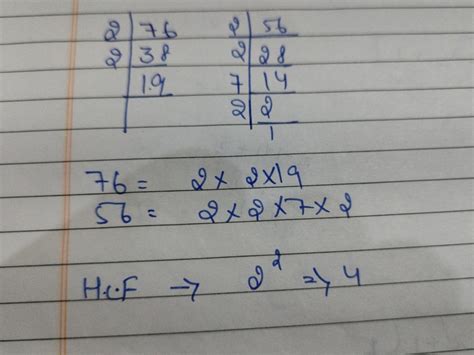 2 | 76   2 | 56
2 | 38   2 | 28
19   7 | 14
2 | 2
1
76 = 2 × 2 × 19
56 = 2 × 2 × 7 × 2
H.C.F → 2² ⇒ 4